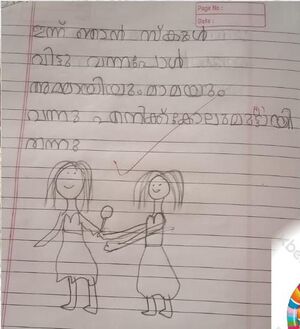 Page No.:
Date :
ഇന്ന് ഞാൻ സ്കൂൾ
വിട്ടു വന്നപോൾ
അമ്മായിയും മാമയും
വന്നു എനിക്ക് കോലുമുട്ടായി
തന്നു